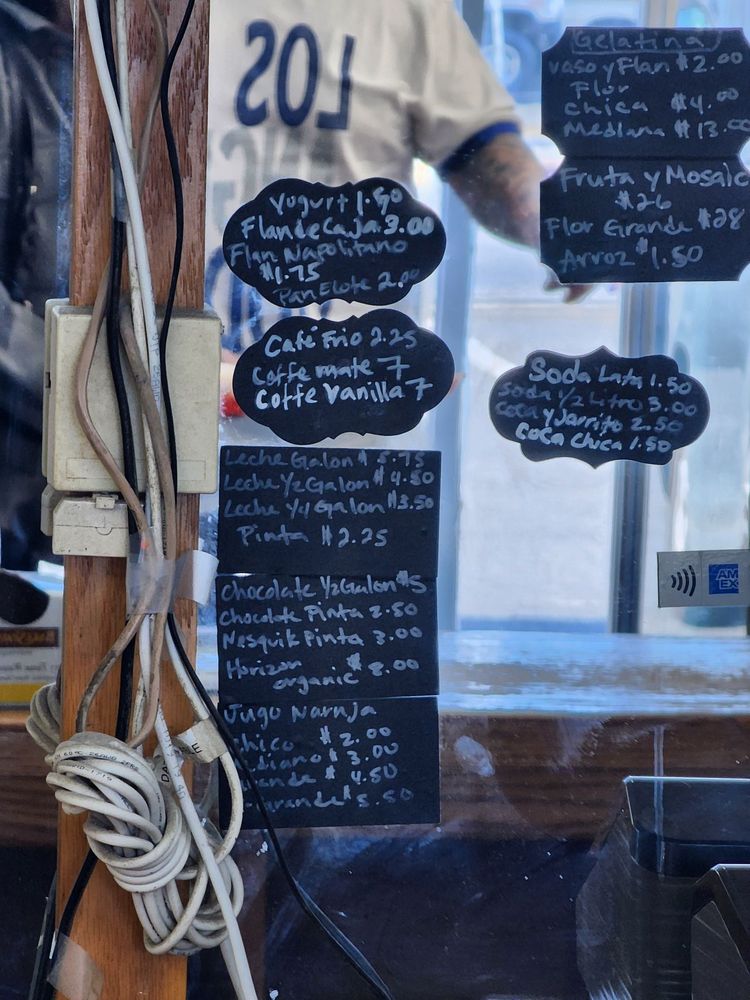 LOS
Gelatina
vaso y Flan $2.00
Flor
chica $4.00
Mediana $13.00
Fruta y Mosaic
$26
Flor Grande $28
Arroz $1.50
Yogurt 1.50
Flan de Caja 3.00
Flan Napolitano
$1.75
Pan Elote 2.00
Café Frio 2.25
Coffe mate 7
Coffe Vanilla 7
Soda Lata 1.50
Soda 1/2 Litro 3.00
Coca y Jarrito 2.50
Coca Chica 1.50
Leche Galon $5.75
Leche 1/2 Galon $4.50
Leche 1/4 Galon $3.50
Pinta $2.25
Chocolate 1/2 Galon $5
Chocolate Pinta 2.50
Nesquik Pinta 3.00
Horizon
organic $2.00
Jugo Narnja
Chico $2.00
diano $3.00
ande $4.50
grande $5.50
AM
EX